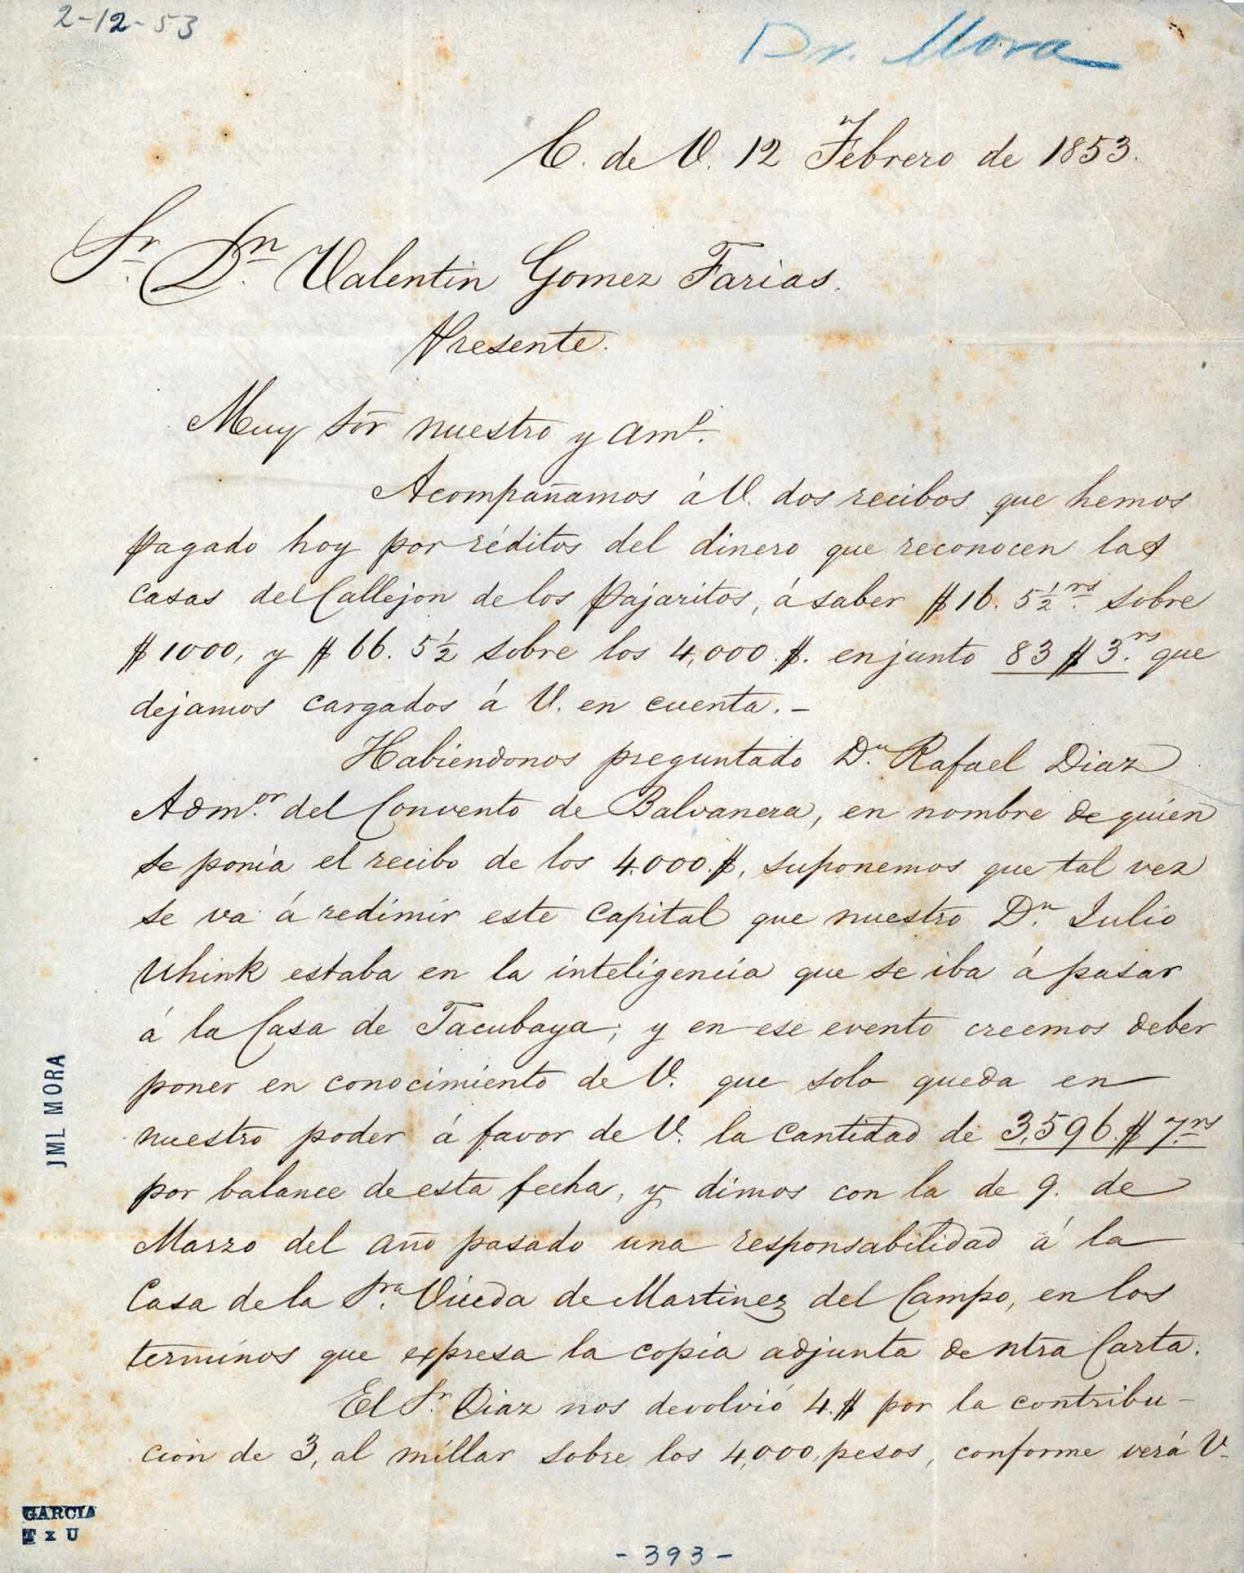 2-12-53
Dr. Mora
C. de V. 12 Febrero de 1853.
Sr. Dn. Valentin Gomez Farias.
Presente.
Muy Sōr nuestro y amo.
Acompañamos á V. dos recibos que hemos
pagado hoy por réditos del dinero que reconocen las
casas del Callejon de los Pajaritos, á saber $16. 5½ rs. sobre
$1000, y $66. 5½ sobre los 4,000.$. en junto 83 $ 3.rs que
dejamos cargados á V. en cuenta.-
Habiendonos preguntado Dn. Rafael Diaz
Admor. del Convento de Balvanera, en nombre de quien
se ponia el recibo de los 4.000.$, suponemos que tal vez
se va á redimir este capital que nuestro Dn. Julio
Uhink estaba en la inteligencia que se iba á pasar
á la Casa de Tacubaya; y en ese evento creemos deber
poner en conocimiento de V. que solo queda en
nuestro poder á favor de V. la cantidad de 3,596.$ 7rs
por balance de esta fecha, y dimos con la de 9. de
Marzo del año pasado una responsabilidad á la
Casa de la Sra. Viuda de Martinez del Campo, en los
terminos que expresa la copia adjunta de ntra Carta.
El Sr. Diaz nos devolvió 4.$ por la contribu-
cion de 3, al millar sobre los 4,000, pesos, conforme verá V.
JML MORA
GARCIA
T x U
- 393 -